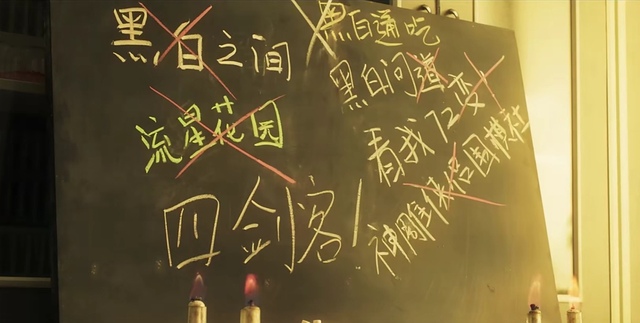 黑白之间
黑白通吃
黑白问道
看我72变
流星花园
神雕侠侣围棋社
四剑客!